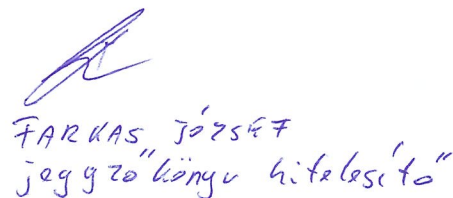 FARKAS JÓZSEF
jegyzőkönyv hitelesítő